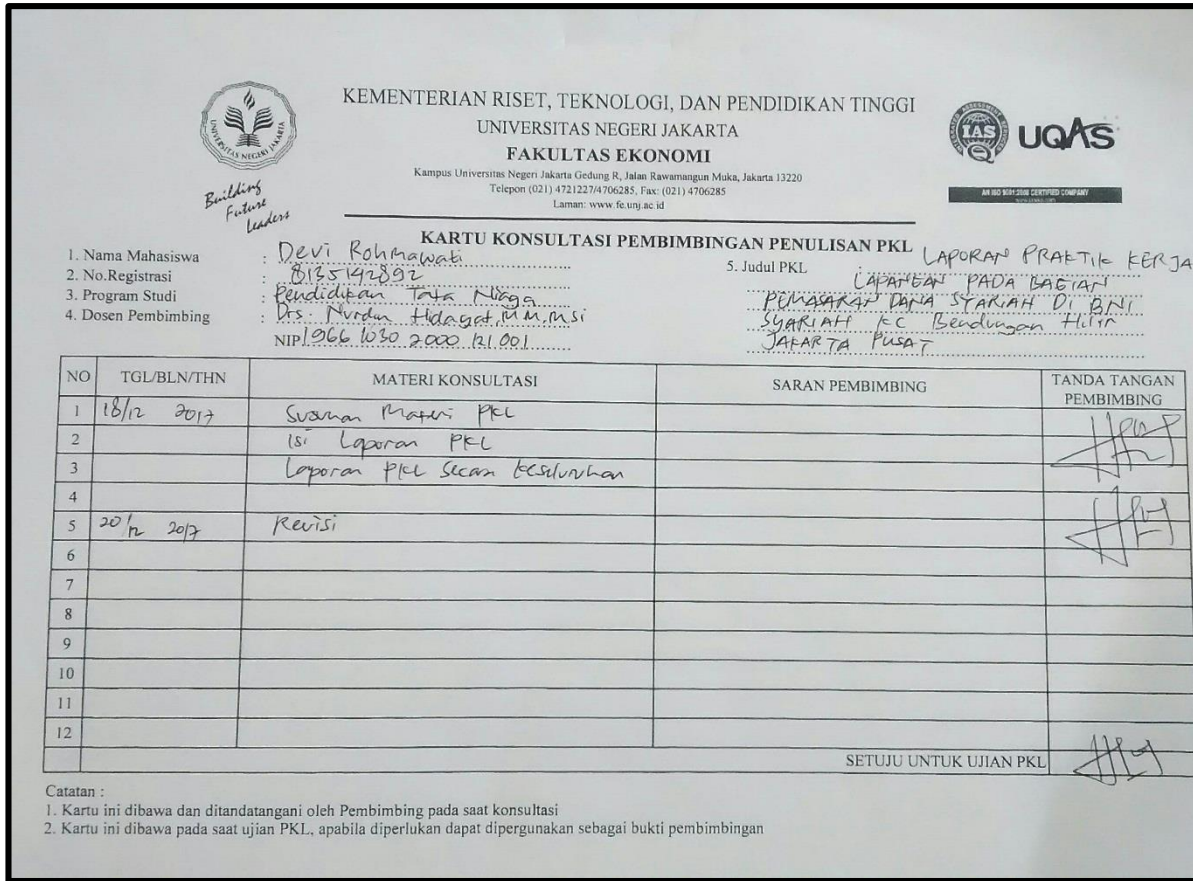 KEMENTERIAN RISET, TEKNOLOGI, DAN PENDIDIKAN TINGGI
UNIVERSITAS NEGERI JAKARTA
FAKULTAS EKONOMI
Kampus Universitas Negeri Jakarta Gedung R, Jalan Rawamangun Muka, Jakarta 13220
Telepon (021) 4721227/4706285, Fax: (021) 4706285
Laman: www.fe.unj.ac.id
UNIVERSITAS NEGERI JAKARTA
Building
Future
Leaders
IAS UQAS
AN ISO 9001:2008 CERTIFIED COMPANY
KARTU KONSULTASI PEMBIMBINGAN PENULISAN PKL
1. Nama Mahasiswa : Devi Rohmawati
2. No.Registrasi : 8135142892
3. Program Studi : Pendidikan Tata Niaga
4. Dosen Pembimbing : Drs. Nurdin Hidayat, M.M, M.Si
NIP 1966 1030 2000 121 001
5. Judul PKL LAPORAN PRAKTIK KERJA
LAPANGAN PADA BAGIAN
PEMASARAN DANA SYARIAH DI BNI
SYARIAH KC Bendungan Hilir
JAKARTA PUSAT
NO TGL/BLN/THN MATERI KONSULTASI SARAN PEMBIMBING TANDA TANGAN PEMBIMBING
1 18/12 2017 Susunan Materi PKL
2 Isi Laporan PKL
3 Laporan PKL secara keseluruhan
4
5 20/12 2017 Revisi
6
7
8
9
10
11
12
SETUJU UNTUK UJIAN PKL
Catatan :
1. Kartu ini dibawa dan ditandatangani oleh Pembimbing pada saat konsultasi
2. Kartu ini dibawa pada saat ujian PKL, apabila diperlukan dapat dipergunakan sebagai bukti pembimbingan